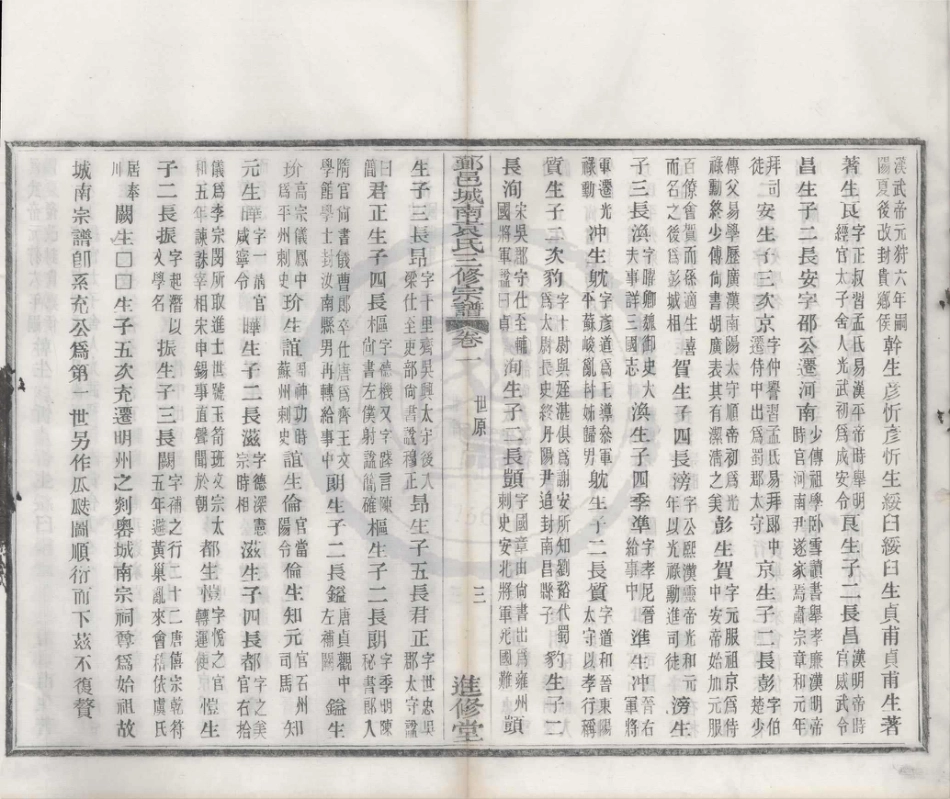 漢武帝元狩六年嗣陽夏後改封貴鄉侯幹生彥忻彥忻生綏臼綏臼生貞甫貞甫生著
著生良字正叔習孟氏易漢平帝時舉明經官太子舍人光武初爲成安令良生子二長昌漢明帝時官威武令
昌生子二長安字邵公遷河南少傳龍學臥雪讀書舉孝廉漢明帝時官河南尹遂家焉肅宗章和元年
拜司徒二安生子三次京字仲譽習孟氏易拜郎中遷侍中出爲蜀郡太守京生子二長彭字伯楚少
傳父易學歷廣漢南陽太守順帝初爲光祿勳終少傳尚書胡廣表其有潔清之美彭生賀字元服祖京爲侍中安帝始加元服
百僚會賀而孫適生喜而名之後爲彭城相賀生子四長滂字公熙漢靈帝光和元年以光祿勳進司徒滂生
子三長渙字曜卿魏御史大夫事詳三國志渙生子四季準字孝尼晉給事中準生冲字晉右軍將
軍遷光祿勳冲生躭字彥道爲王導參軍平蘇峻亂封姊歸男躭生子二長質字道和晉東陽太守以孝行稱
質生子二次豹字十尉與姪湛俱爲謝安所知劉裕代蜀爲太尉長史終丹陽尹追封南昌縣子豹生子二
長洵宋吳郡守仕至輔國將軍諡曰貞洵生子二長顗字國章由尚書出爲雍州刺史安北將軍死國難顗
鄞邑城南袁氏三修宗譜 卷一 世原 三 進修堂
生子三長昂字千里齊吳興太守後入梁仕至吏部尚書諡穆正昂生子五長君正字世忠吳郡太守諡
曰簡君正生子四長樞字德機又字踐言陳尚書左僕射諡簡確樞生子二長朗字季明陳秘書郎入
隋官尚書儀曹郎卒仕唐爲齊王文學館學士封汝南縣男再轉給事中朗生子二長鎰唐貞觀中左補闕鎰生
玠高宗儀鳳中爲平州刺史玠生誼字神功時蘇州刺史誼生倫官當陽令倫生知元官石州司馬知
元生曄字一滴官咸寧令曄生子二長滋字德深憲宗時相滋生子四長都官右拾
儀爲李宗閔所取進士世號玉筍班文宗太和五年諫誅宰相宋申錫事直聲聞於朝都生愷字悅之官轉運使愷生
子二長振字起潛以文學名振生子三長闕字補之行二十二唐僖宗乾符五年避黃巢亂來會稽依虞氏
居奉川闕生□□□生子五次充遷明州之剡嶴城南宗祠尊爲始祖故
城南宗譜卽系充公爲第一世另作瓜瓞圖順衍而下茲不復贅